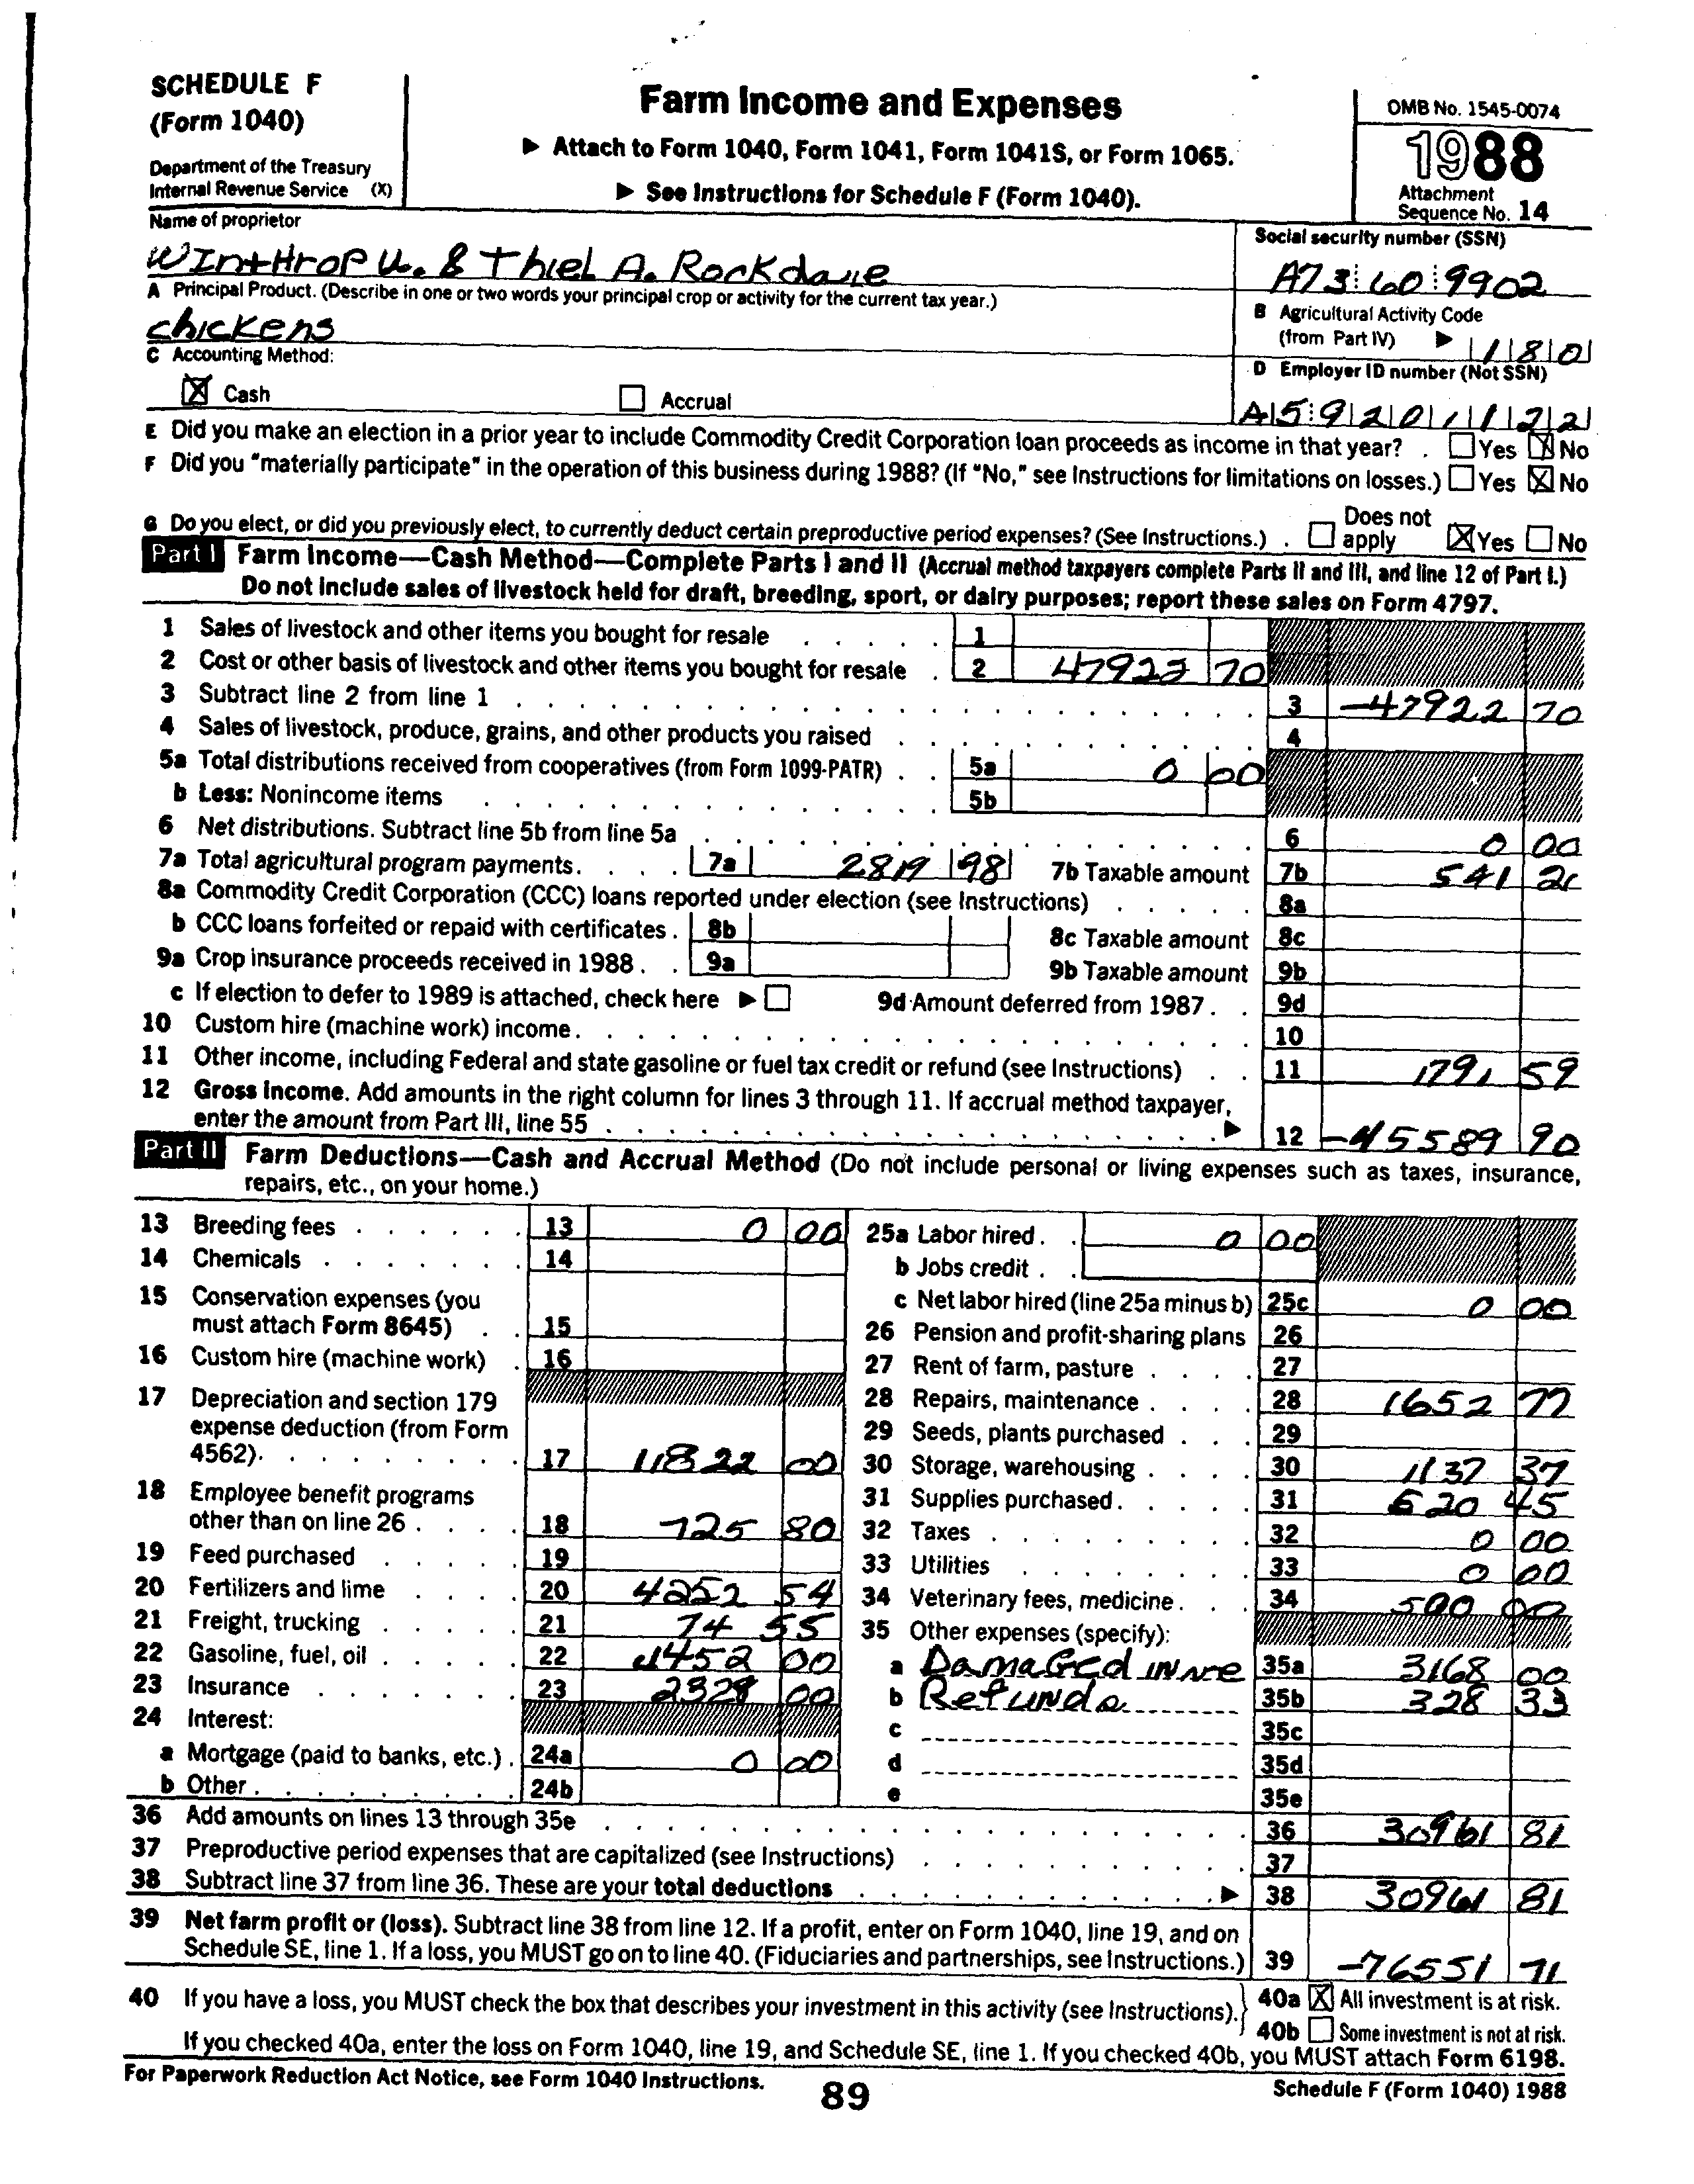 SCHEDULE F
(Form 1040)
Department of the Treasury
Internal Revenue Service (X)
Farm Income and Expenses
▶ Attach to Form 1040, Form 1041, Form 1041S, or Form 1065.
▶ See Instructions for Schedule F (Form 1040).
OMB No. 1545-0074
1988
Attachment
Sequence No. 14
Name of proprietor
WInthrop U. & Thiel A. Rockdale
Social security number (SSN)
A73 60 9902
A Principal Product. (Describe in one or two words your principal crop or activity for the current tax year.)
chickens
B Agricultural Activity Code
(from Part IV) ▶ 180
C Accounting Method:
☒ Cash ☐ Accrual
D Employer ID number (Not SSN)
A5 9201122
E Did you make an election in a prior year to include Commodity Credit Corporation loan proceeds as income in that year? . ☐ Yes ☒ No
F Did you "materially participate" in the operation of this business during 1988? (If "No," see Instructions for limitations on losses.) ☐ Yes ☒ No
G Do you elect, or did you previously elect, to currently deduct certain preproductive period expenses? (See Instructions.) . ☐ Does not apply ☒ Yes ☐ No
Part I Farm Income—Cash Method—Complete Parts I and II (Accrual method taxpayers complete Parts II and III, and line 12 of Part I.)
Do not include sales of livestock held for draft, breeding, sport, or dairy purposes; report these sales on Form 4797.
1 Sales of livestock and other items you bought for resale 1
2 Cost or other basis of livestock and other items you bought for resale 2 47922 70
3 Subtract line 2 from line 1 3 -47922 70
4 Sales of livestock, produce, grains, and other products you raised 4
5a Total distributions received from cooperatives (from Form 1099-PATR) 5a 0 00
b Less: Nonincome items 5b
6 Net distributions. Subtract line 5b from line 5a 6 0 00
7a Total agricultural program payments. 7a 2819 98 7b Taxable amount 7b 541 21
8a Commodity Credit Corporation (CCC) loans reported under election (see Instructions) 8a
b CCC loans forfeited or repaid with certificates . 8b 8c Taxable amount 8c
9a Crop insurance proceeds received in 1988 . 9a 9b Taxable amount 9b
c If election to defer to 1989 is attached, check here ▶ ☐ 9d Amount deferred from 1987 . . 9d
10 Custom hire (machine work) income 10
11 Other income, including Federal and state gasoline or fuel tax credit or refund (see Instructions) 11 1791 59
12 Gross income. Add amounts in the right column for lines 3 through 11. If accrual method taxpayer,
enter the amount from Part III, line 55 ▶ 12 -45589 90
Part II Farm Deductions—Cash and Accrual Method (Do not include personal or living expenses such as taxes, insurance,
repairs, etc., on your home.)
13 Breeding fees 13 0 00
14 Chemicals 14
15 Conservation expenses (you
must attach Form 8645) 15
16 Custom hire (machine work) 16
17 Depreciation and section 179
expense deduction (from Form
4562) 17 11822 00
18 Employee benefit programs
other than on line 26 18 725 80
19 Feed purchased 19
20 Fertilizers and lime 20 4252 54
21 Freight, trucking 21 74 55
22 Gasoline, fuel, oil 22 4452 00
23 Insurance 23 2328 00
24 Interest:
a Mortgage (paid to banks, etc.) . 24a 0 00
b Other 24b
25a Labor hired 0 00
b Jobs credit
c Net labor hired (line 25a minus b) 25c 0 00
26 Pension and profit-sharing plans 26
27 Rent of farm, pasture 27
28 Repairs, maintenance 28 1652 77
29 Seeds, plants purchased 29
30 Storage, warehousing 30 1137 37
31 Supplies purchased 31 620 45
32 Taxes 32 0 00
33 Utilities 33 0 00
34 Veterinary fees, medicine 34 500 00
35 Other expenses (specify):
a Damaged 35a 3168 00
b Refunds 35b 328 33
c 35c
d 35d
e 35e
36 Add amounts on lines 13 through 35e 36 30961 81
37 Preproductive period expenses that are capitalized (see Instructions) 37
38 Subtract line 37 from line 36. These are your total deductions ▶ 38 30961 81
39 Net farm profit or (loss). Subtract line 38 from line 12. If a profit, enter on Form 1040, line 19, and on
Schedule SE, line 1. If a loss, you MUST go on to line 40. (Fiduciaries and partnerships, see Instructions.) 39 -76551 71
40 If you have a loss, you MUST check the box that describes your investment in this activity (see Instructions). 40a ☒ All investment is at risk.
40b ☐ Some investment is not at risk.
If you checked 40a, enter the loss on Form 1040, line 19, and Schedule SE, line 1. If you checked 40b, you MUST attach Form 6198.
For Paperwork Reduction Act Notice, see Form 1040 Instructions.
89
Schedule F (Form 1040) 1988